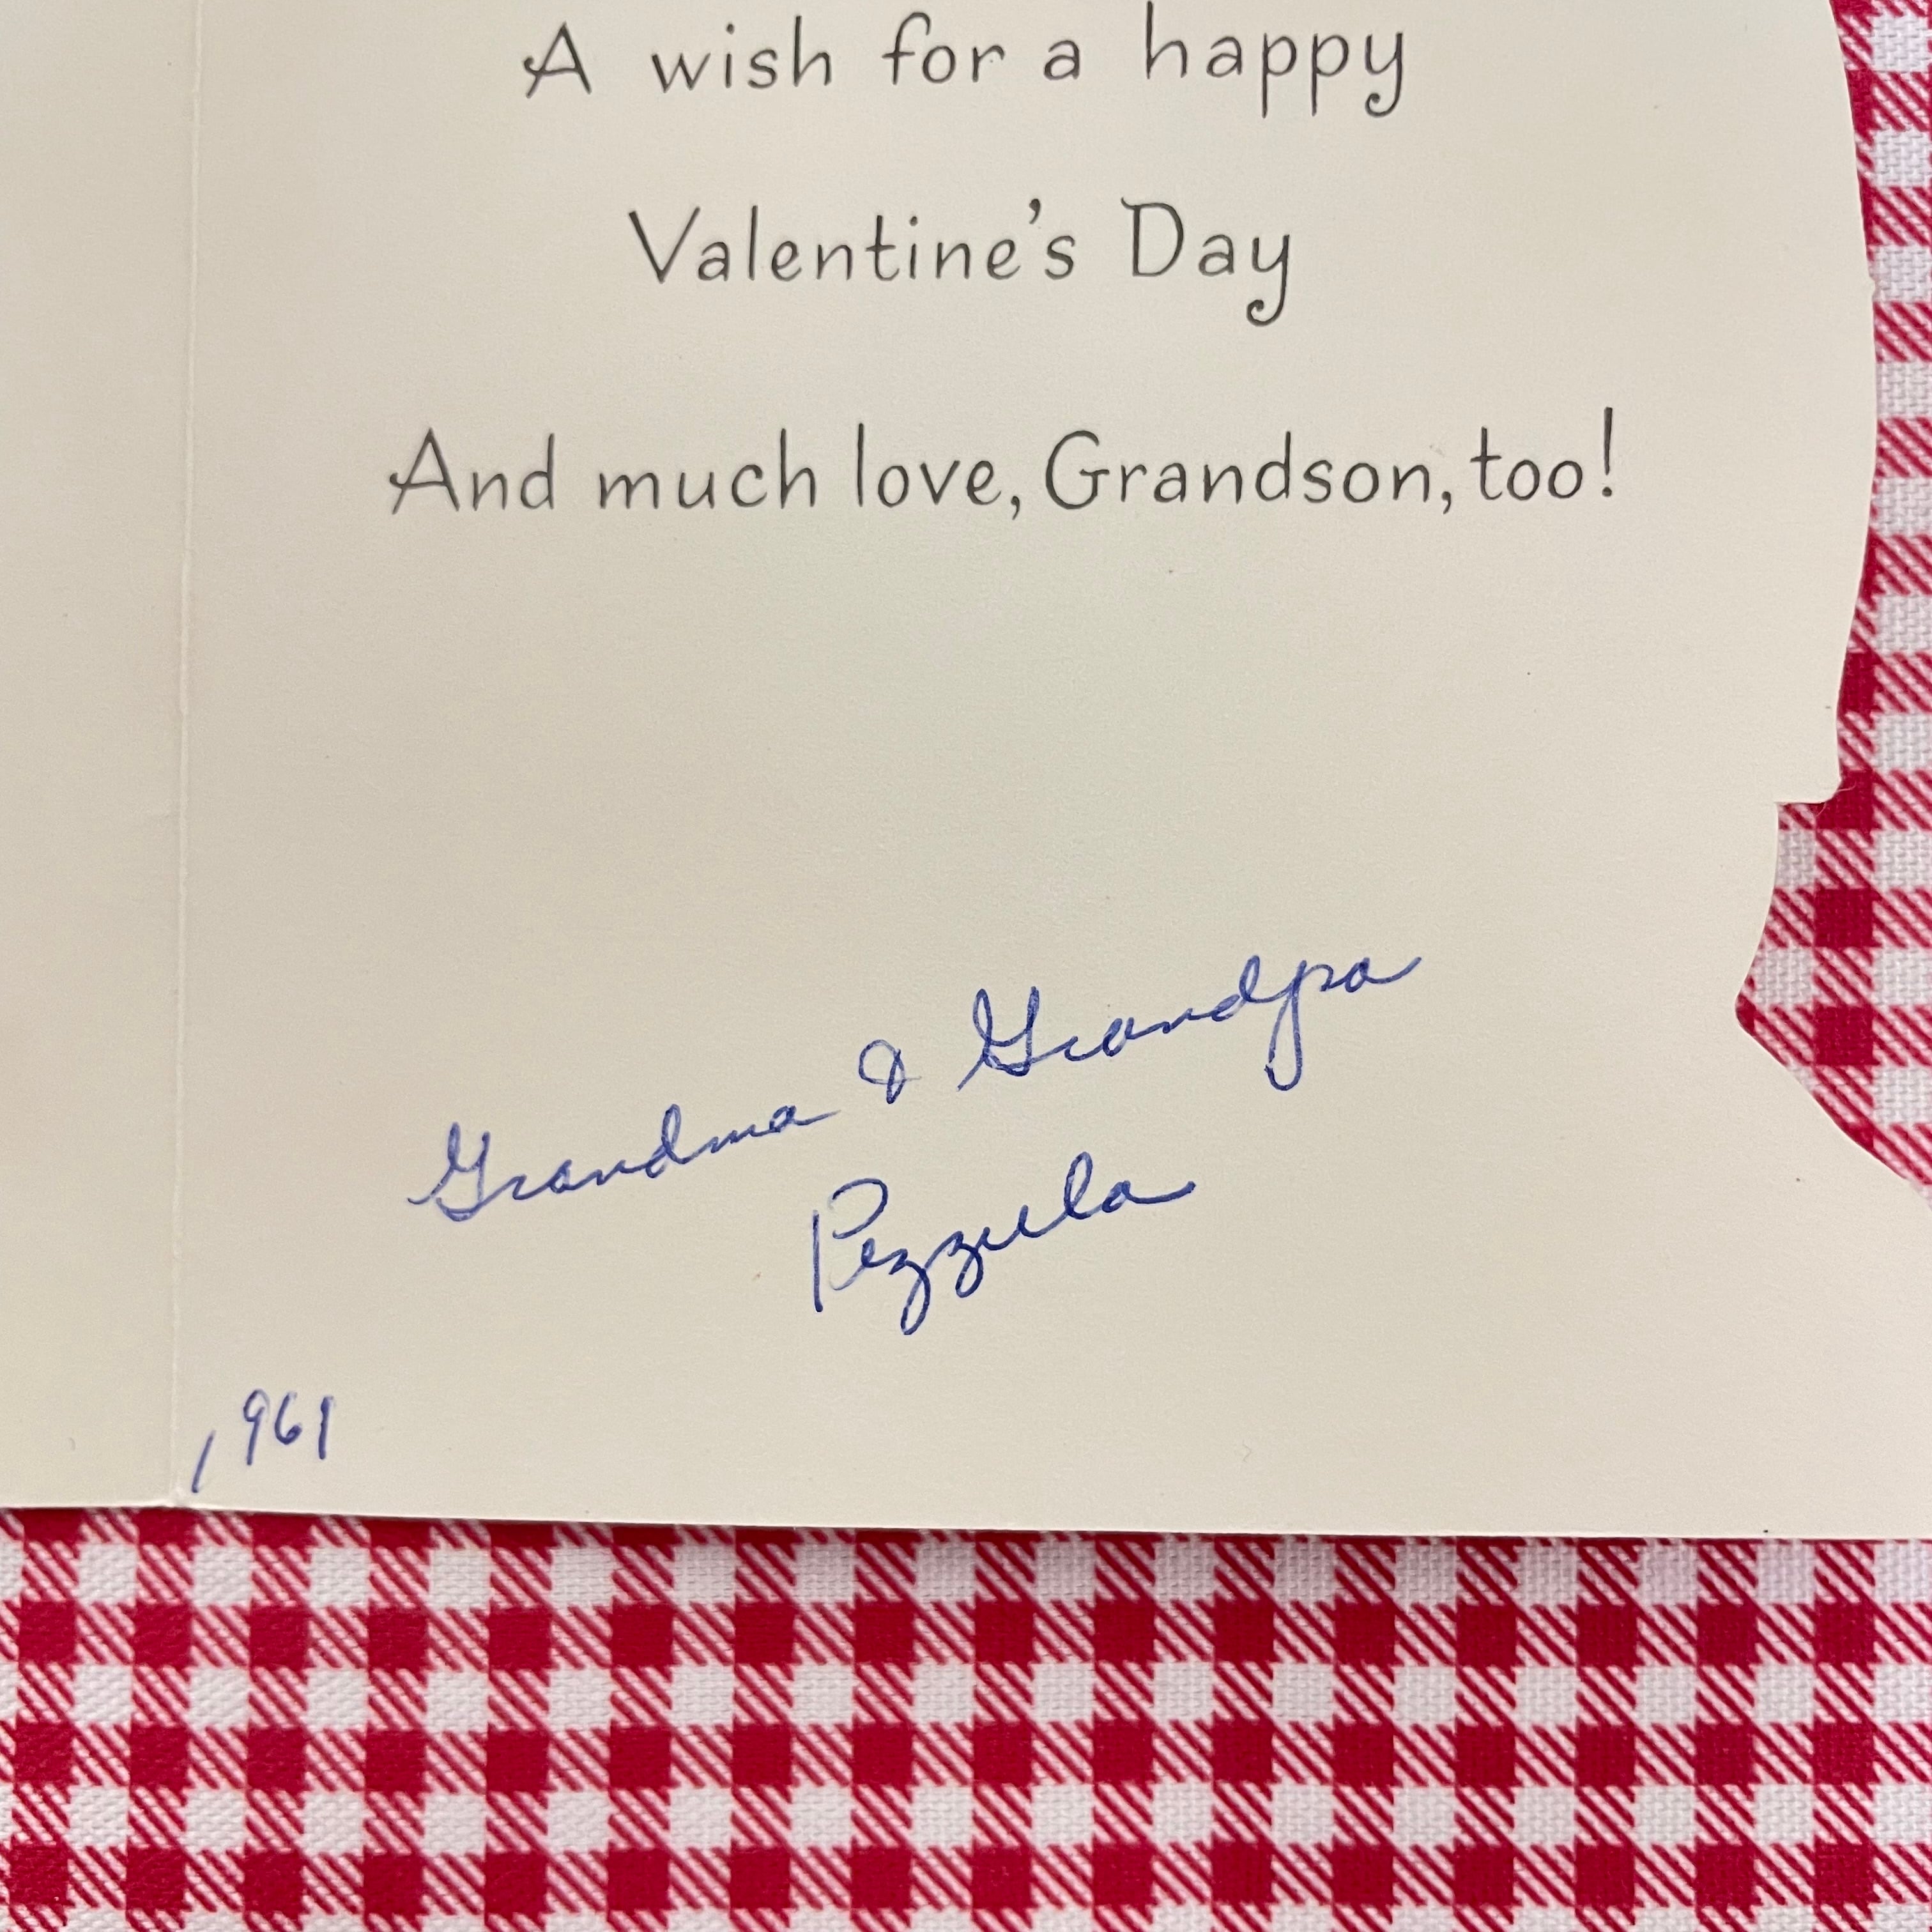 A wish for a happy
Valentine's Day
And much love, Grandson, too!
Grandma & Grandpa
Pezzula
1961